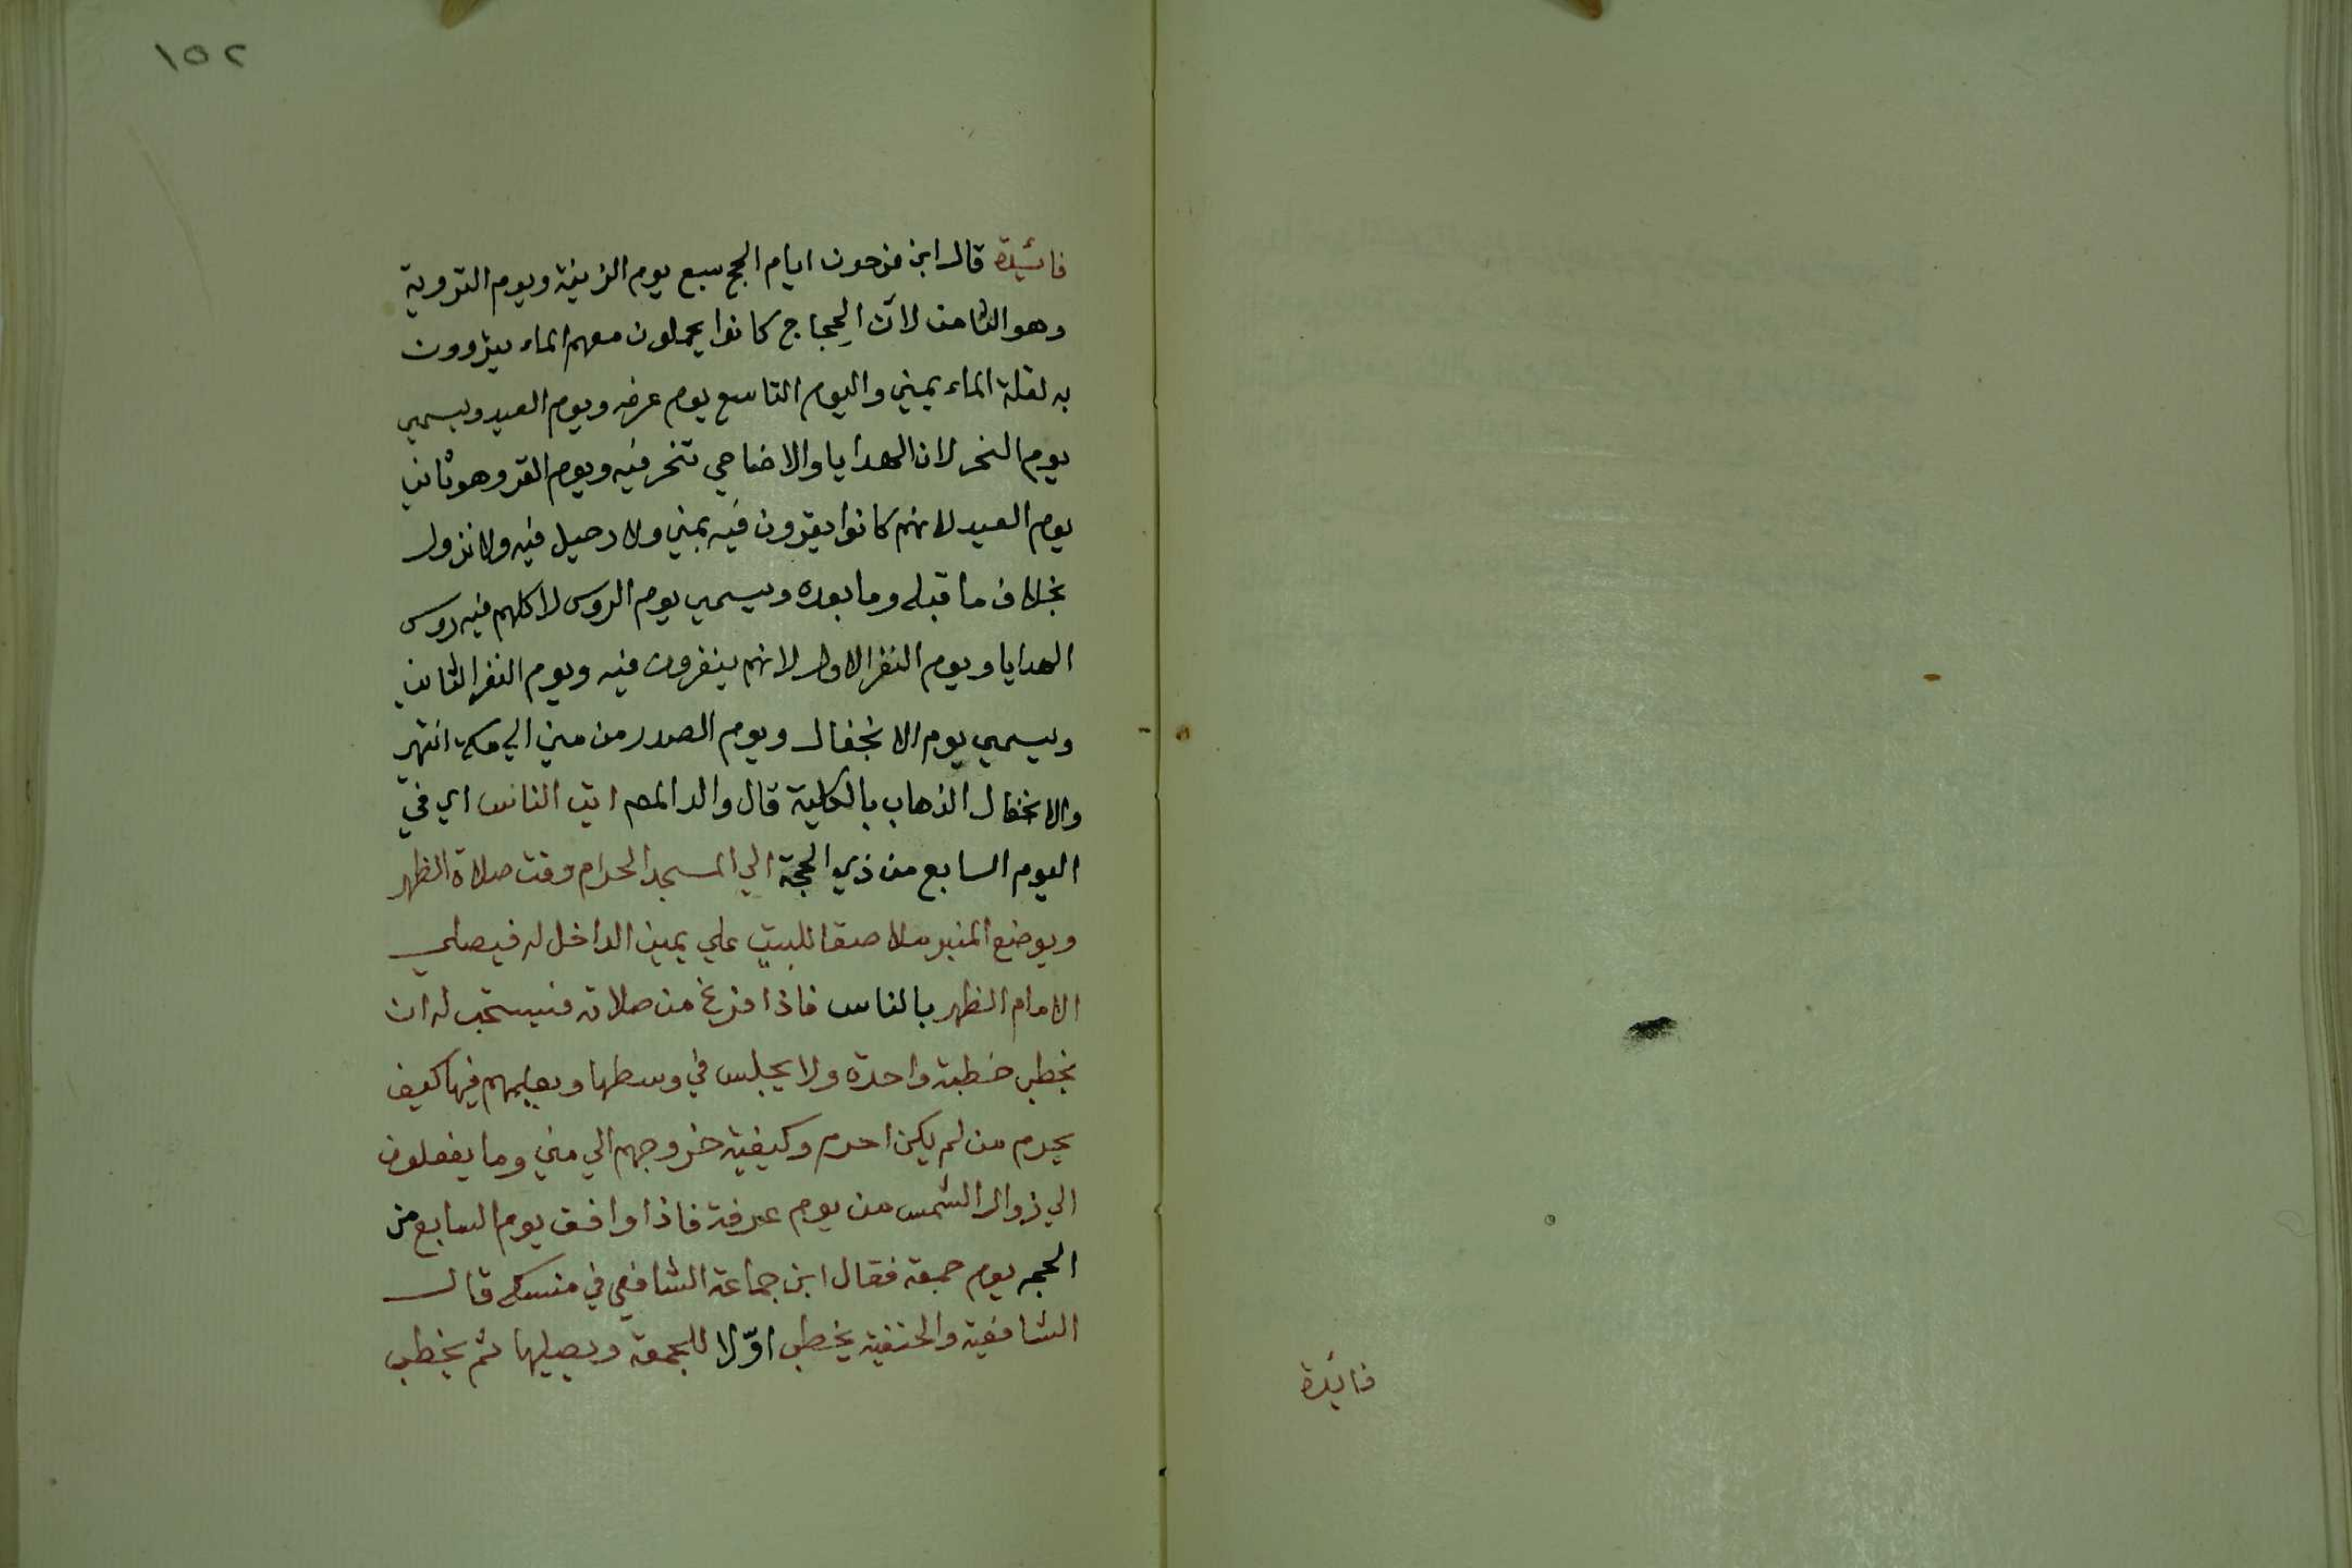 فائدة
١٥٢
فائيدة قال ابن فرحون ايام الحج سبع يوم الزينة ويوم التروية
وهو الثامن لأن الحِجاج كانوا يحملون معهم الماء يتروون
به لقلة الماء بمني واليوم التاسع يوم عرفه ويوم العيد ويسمي
يوم النحر لان الهدايا والاضاحي تنحر فيه ويوم القر وهو ثاني
يوم العيد لانهم كانوا يقرون فيه بمني ولا رحيل فيه ولا نزول
بخلاف ما قبله وما بعده ويسمي يوم الروس لاكلهم فيه روس
الهدايا ويوم النفر الاول لانهم ينفرون فيه ويوم النفر الثاني
ويسمي يوم الانجفال ويوم الصدر من مني الي مكة انتهي
والانجفال الذهاب بالكلية قال والد المص اتي الناس اي في
اليوم السابع من ذي الحجة الي المسجد الحرام وقت صلاة الظهر
ويوضع المنبر ملاصقا للبيت علي يمين الداخل له فيصلي
الامام الظهر بالناس فاذا فرغ من صلاته فيستحب له ان
يخطب خطبة واحدة ولا يجلس في وسطها ويعلمهم فيها كيف
يحرم من لم يكن احرم وكيفية خروجهم الي مني وما يفعلون
الي زوال الشمس من يوم عرفة فاذا وافق يوم السابع من
الحجه يوم جمعة فقال ابن جماعة الشافعي في منسكه قال
الشافعية والحنفية يخطب اوّلا للجمعة ويصليها ثم يخطب